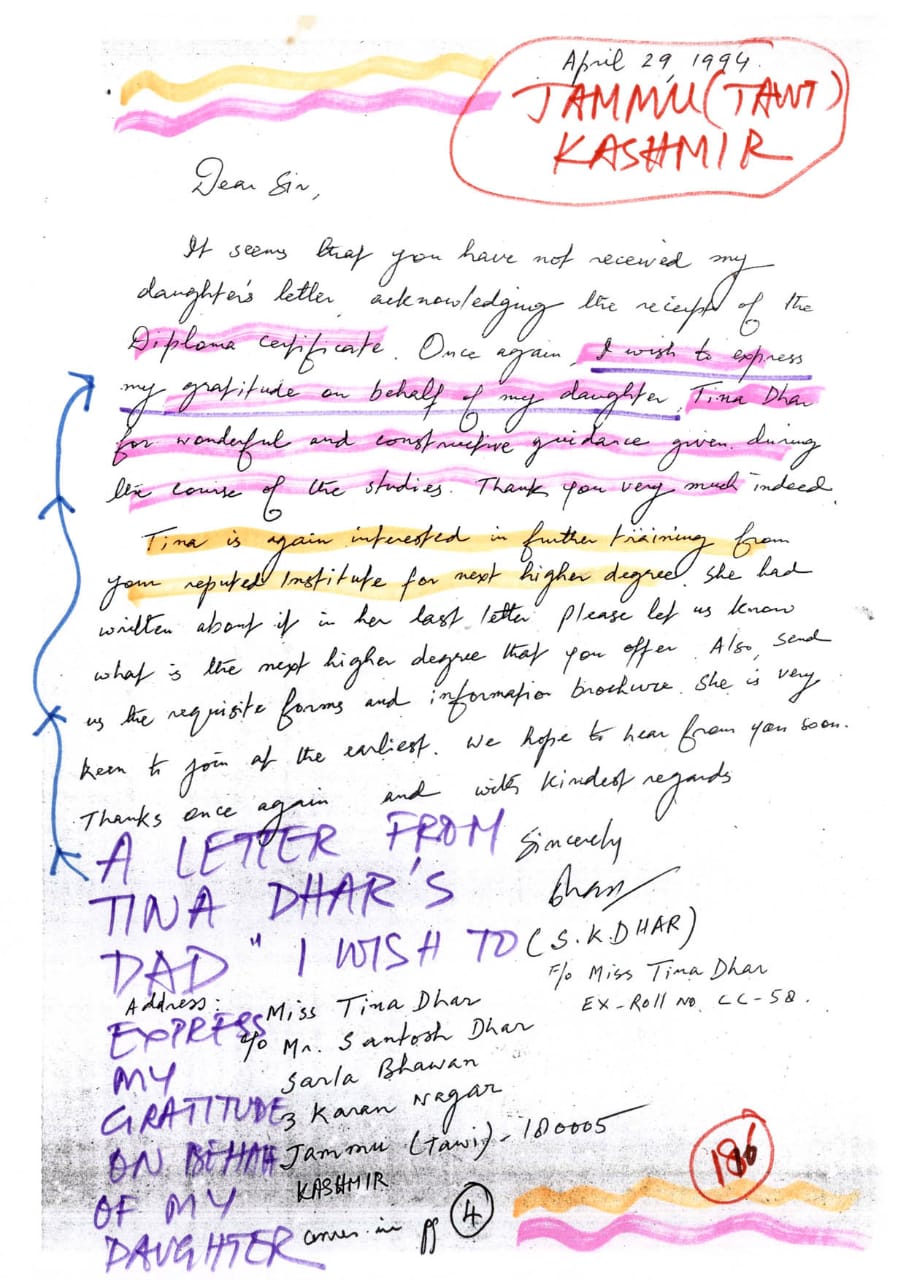 April 29, 1994.
JAMMU (TAWI)
KASHMIR
Dear Sir,
It seems that you have not received my
daughter's letter acknowledging the receipt of the
Diploma certificate. Once again, I wish to express
my gratitude on behalf of my daughter, Tina Dhar
for wonderful and constructive guidance given during
the course of the studies. Thank you very much indeed.
Tina is again interested in further training from
your reputed Institute for next higher degree. She had
written about it in her last letter. Please let us know
what is the next higher degree that you offer. Also, send
us the requisite forms and information brochure. She is very
keen to join at the earliest. We hope to hear from you soon.
Thanks once again and with kindest regards
Sincerely
Dhar
(S.K DHAR)
F/o Miss Tina Dhar
EX-Roll No. CC-58.
A LETTER FROM
TINA DHAR'S
DAD "I WISH TO
EXPRESS
MY
GRATITUDE
ON BEHAH
OF MY
DAUGHTER
Address:
Miss Tina Dhar
c/o Mr. Santosh Dhar
Sarla Bhawan
3 Karan Nagar
Jammu (Tawi) - 180005
KASHMIR
comes in pg 4
186